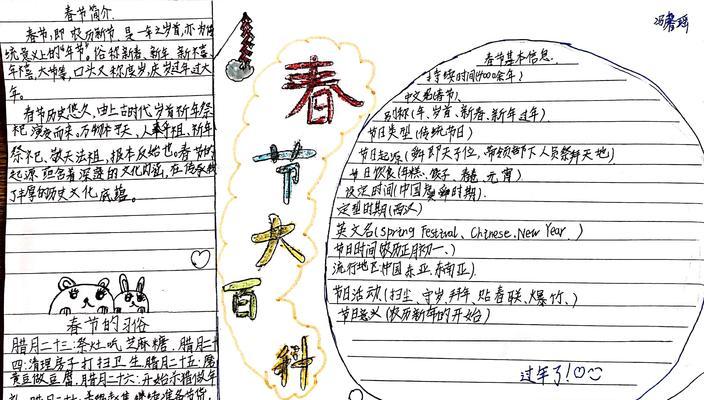 春节简介.
春节,即农历新节,是一年之岁首,亦为传
统意义上的"年节"。俗称新春、新年、新禧、
年禧、大节等,口头又称度岁、庆岁过年过大
年。
春节历史悠久,由上古时代岁首祈年祭
祀演变而来。万物本乎天、人本乎祖,祈年
祭祀、敬天法祖,报本反始也。春节的
起源蕴含着深邃的文化内涵,在传承
了丰厚的历史文化底蕴。
春节的习俗
腊月二十三:祭灶吃芝麻糖,腊月二十
四:清理房子打扫卫生腊月二十五:磨
黄豆做豆腐,腊月二十六:开始杀猪做年
春节大百科
冯
春节基本信息.
持续时间(4000余年)
中文名(春节)
别称(年、岁首、新春、新年过年)
节日类型(传统节日)
节日起源(舜即天子位,带领部下人员祭拜天地)
节日饮食(年糕、饺子、春卷、元宵)
设定时间(中国虞舜时期).
定型时期(西汉)
英文名(Spring Festival、Chinese、New Year、)
节日时间农历正月初一、)
流行地区中国东亚、东南亚)
节日活动(扫尘、守岁、拜年、贴春联、爆竹、)
节日意义(农历新年的开始)
过年了!